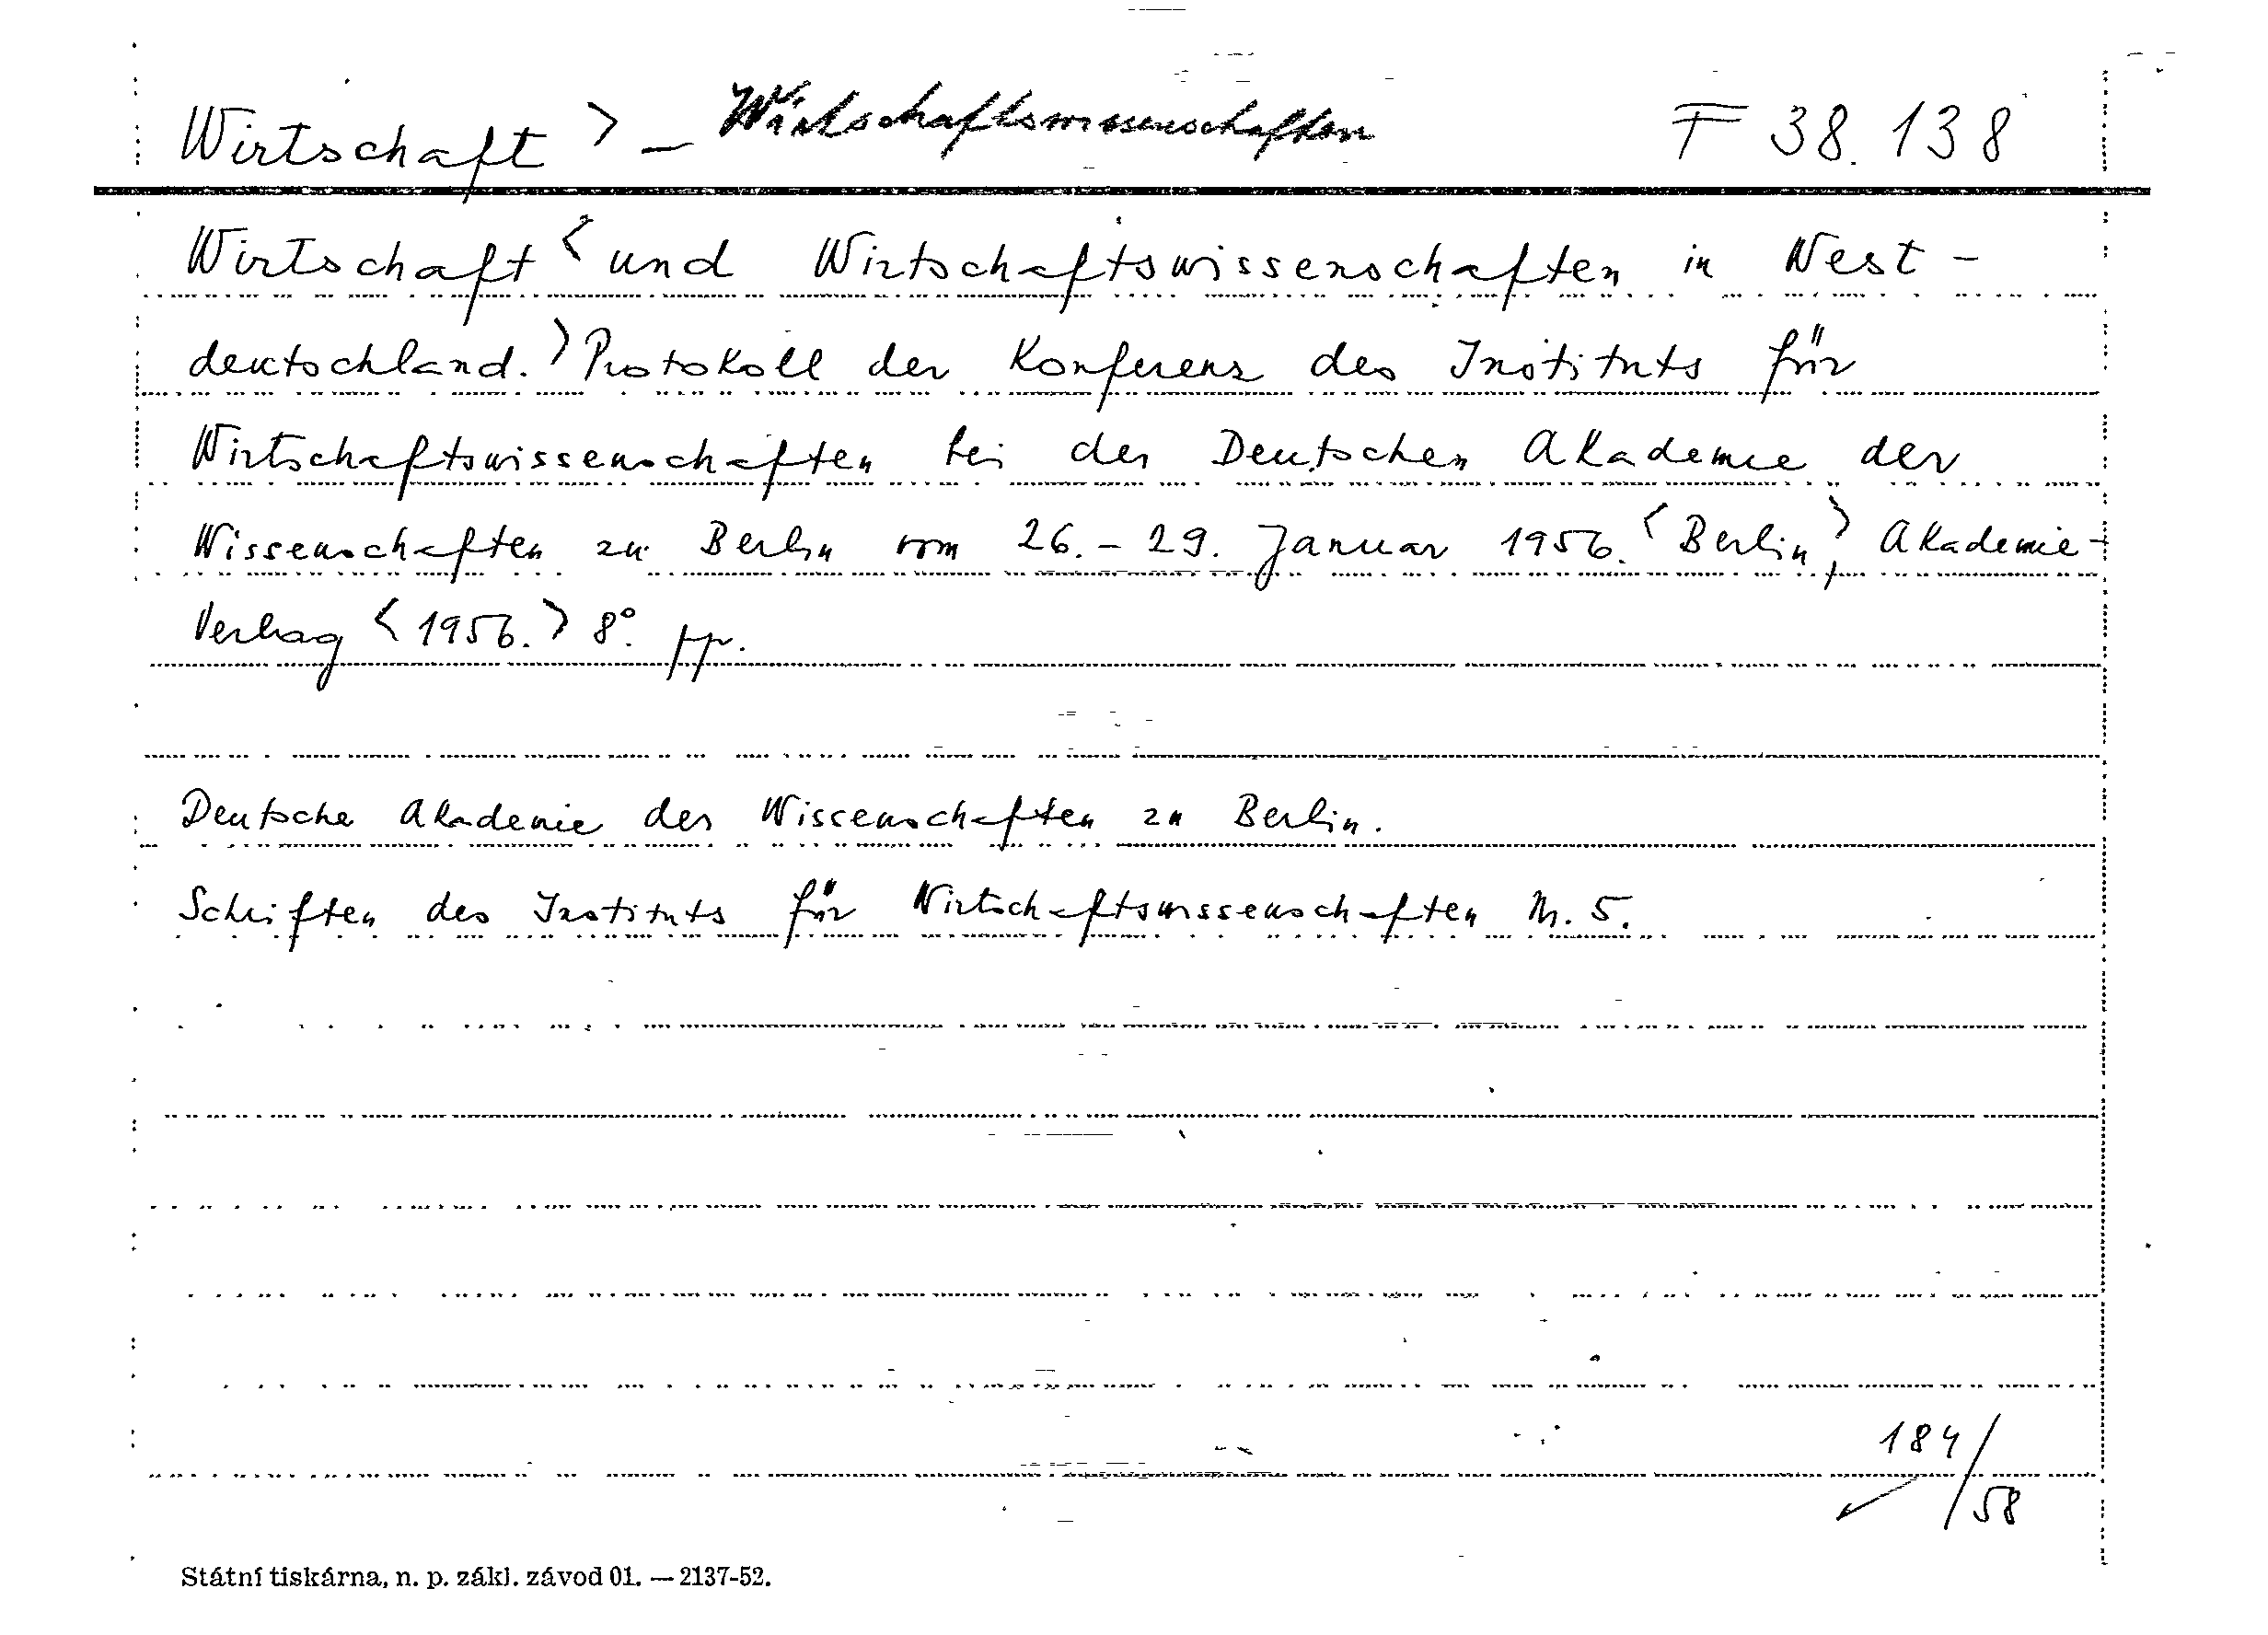 Wirtschaft > - Wirtschaftswissenschaften F 38.138
Wirtschaft < und Wirtschaftswissenschaften in West-
deutschland. > Protokoll der Konferenz des Instituts für
Wirtschaftswissenschaften bei der Deutschen Akademie der
Wissenschaften zu Berlin vom 26.-29. Januar 1956. < Berlin, > Akademie-
Verlag < 1956. > 8°. pp.
Deutsche Akademie der Wissenschaften zu Berlin.
Schriften des Instituts für Wirtschaftswissenschaften Nr. 5.
184/58
Státní tiskárna, n. p. zákl. závod 01. — 2137-52.